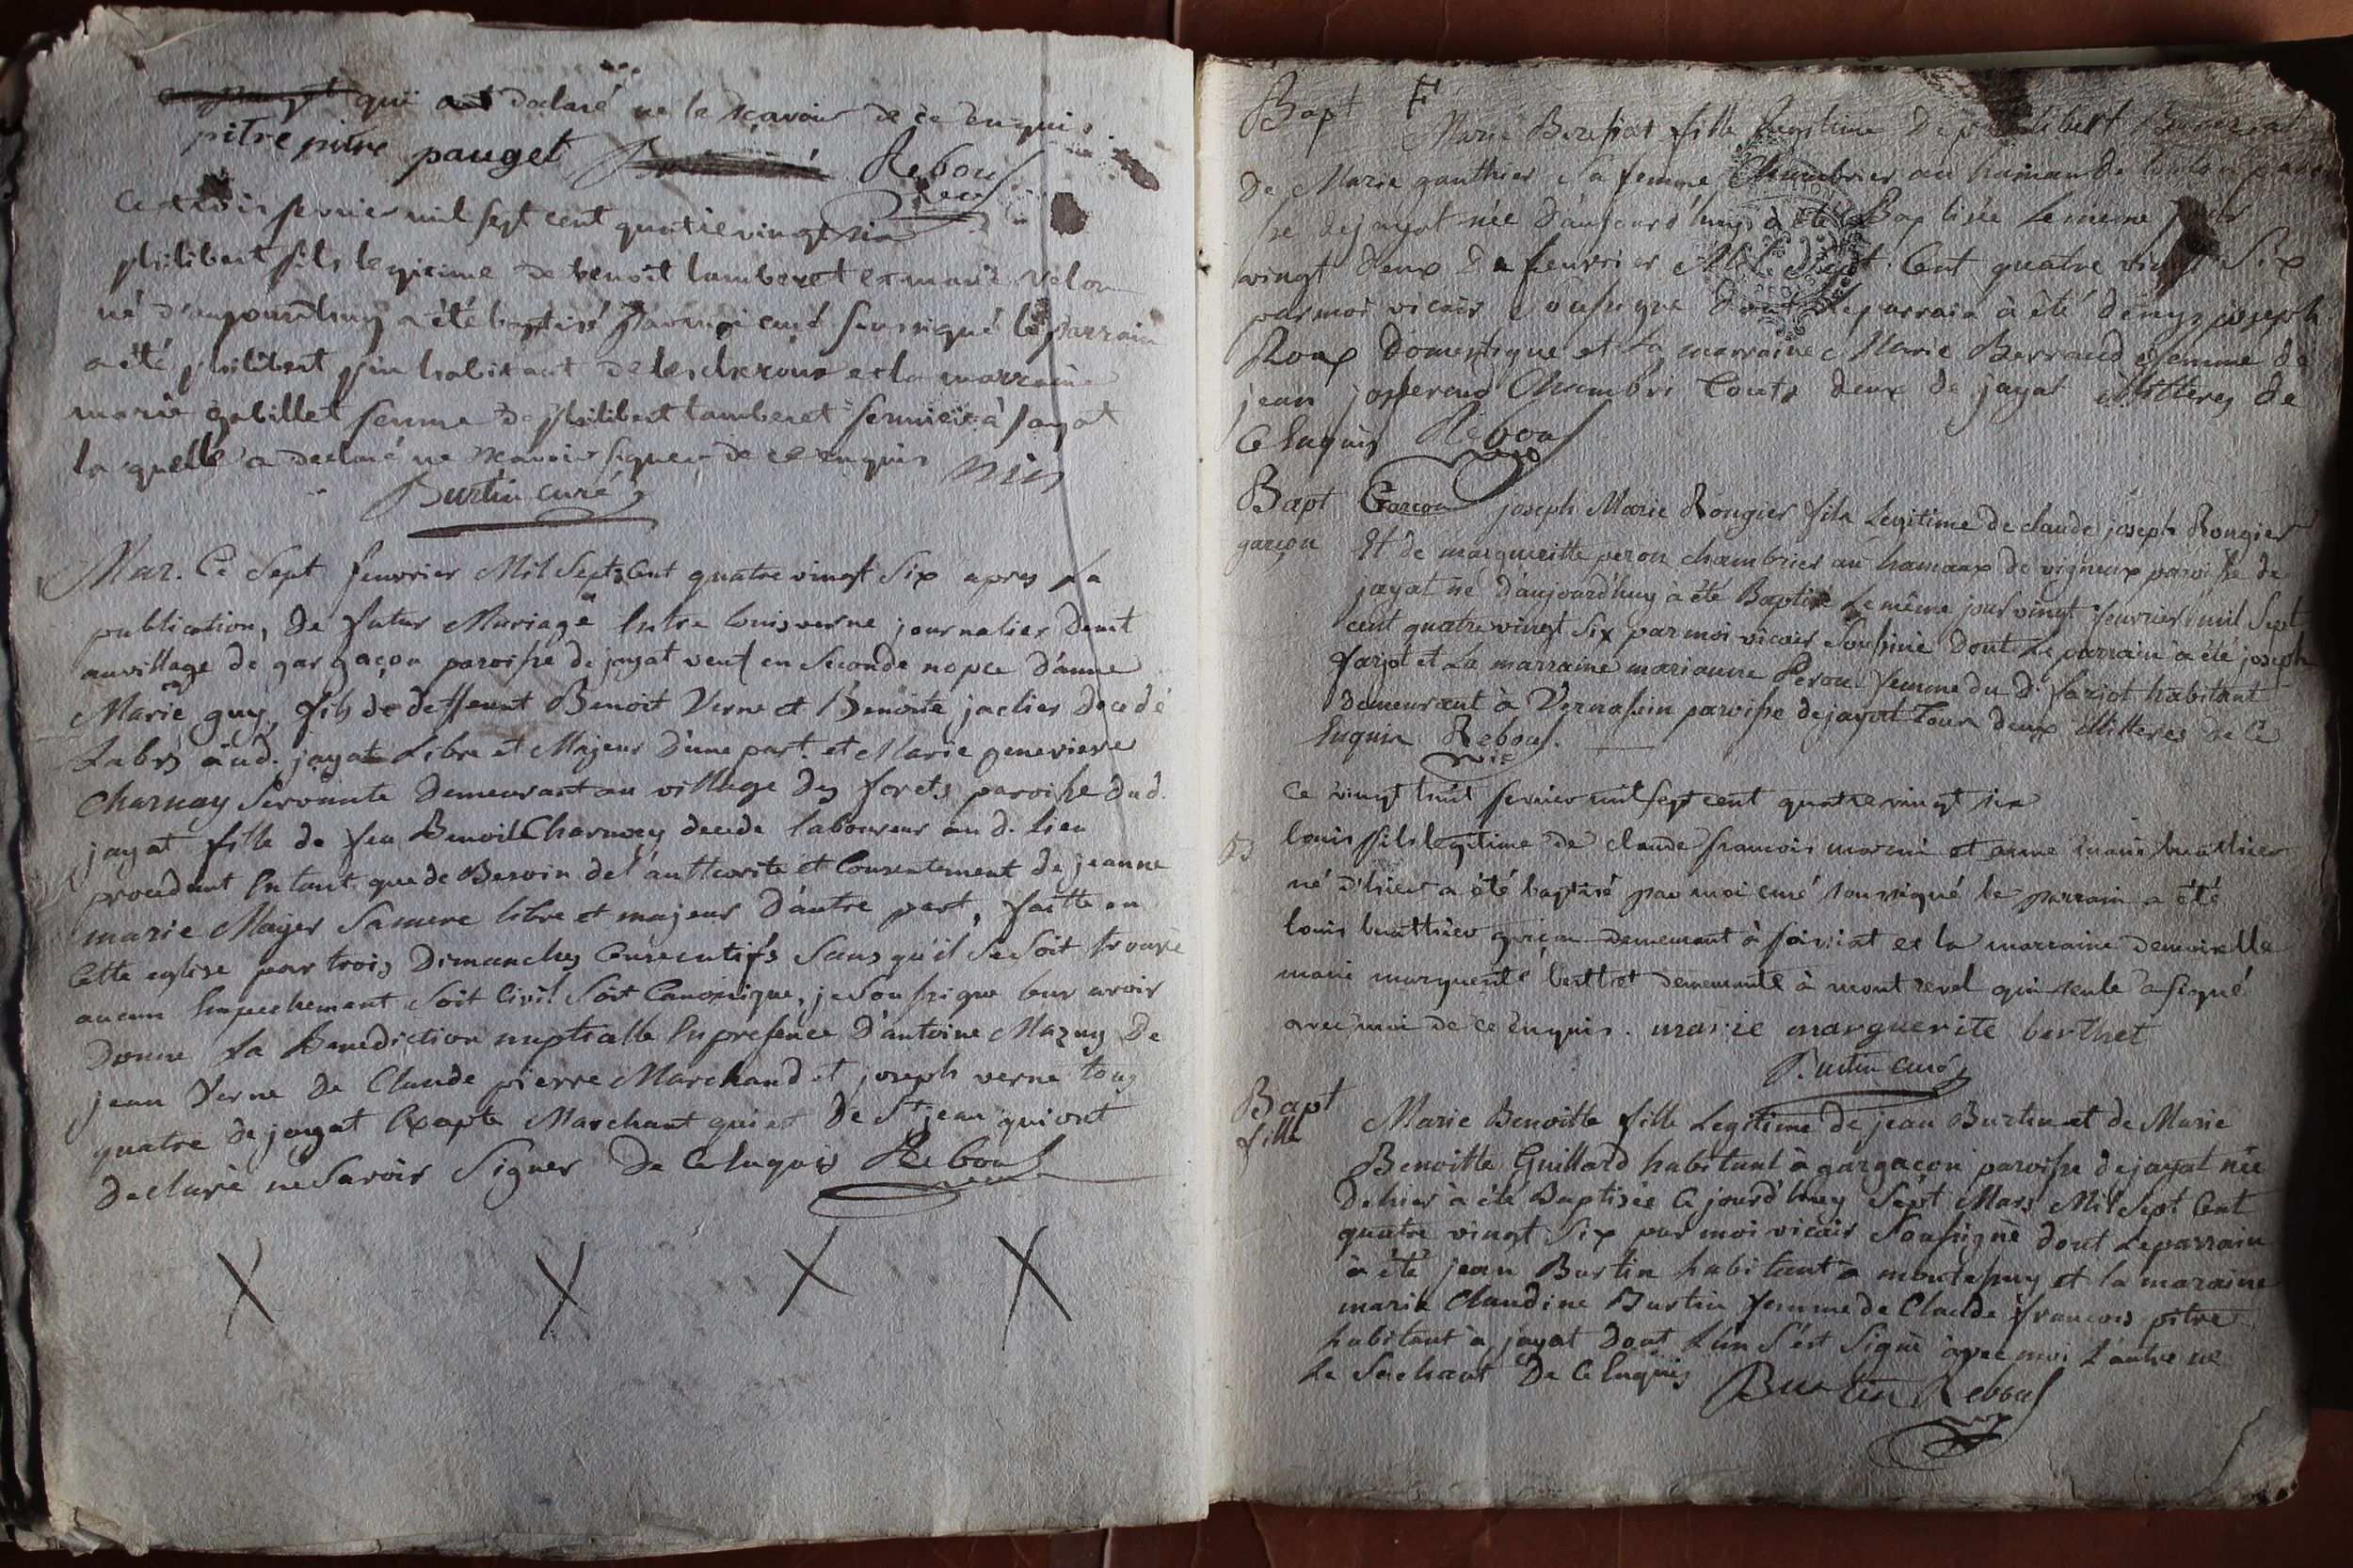 qui ont declaré ne le scavoir de ce enquis.
pitre pitre pauget Rebouf
vicr
Ce trois fevrier mil sept cent quatre vingt six
philibert fils legitime de benoit lamberet et marie velon
né d'aujourdhuy a été baptisé par moi curé soussigné le parrain
a été philibert pin habitant de lescheroux et la marraine
marie gabillet femme de philibert lamberet fermier à jayat
la quelle a declaré ne scavoir signer de ce enquis
Burtin curé
Mar. Ce Sept feuvrier Mil Sept Cent quatre vingt Six apres La
publication, de futur Mariage Entre louis verne journalier demt
au village de gargaçon paroisse de jayat veuf en Seconde nopce d'anne
Marie guy, fils de deffeunt Benoit Verne et Benoite jaclier decedé
Labrs aud. jayat Libre et Majeur d'une part. et Marie genevieve
Charnay Servante demeurant au village des forets paroisse dud.
jayat fille de feu Benoit Charnay decede laboureur au d. lieu
procedant En tant que de Besoin de l'autthorite et Consentement de jeanne
marie Mayer Sa mere libre et majeur d'autre part, faitte en
Cette eglise par trois Dimanches Consecutifs Sans qu'il Se Soit trouvé
aucun Empechement Soit Civil Soit Canonique, je Soussigne leur avoir
Donné La Benediction nuptialle En presence D'antoine Mazuy De
jean Verne De Claude pierre Marchand et joseph verne tous
quatre de jayat Exapté Marchant qui est De St jean qui ont
Declaré ne Savoir Signer De Ce Enquis Rebouf
X X X X
Bapt F
Marie Bereziat fille Legitime De philibert Bereziat
De Marie gauthier Sa femme Chambrier au hamau de
se dejayat née d'aujourd'huy à été Baptisée Le meme jour
vingt deux De feuvrier Mil Sept Cent quatre vingt Six
par moi vicair Sousigne Dont Le parrain à été denys joseph
Roux Domestique et La marraine Marie Berraud femme de
jean josserand Chambri touts deux de jayat illitteres de
Ce Enquis Rebouf
Bapt Garcon joseph Marie Rougier fils Legitime de claude joseph Rougier
garçon Et de margueritte peron chambrier au hamaux de vigneux paroisse de
jayat né d'aujourd'huy à été Baptisé Le même jour vingt feuvrier mil Sept
cent quatre vingt Six par moi vicair Sousiné Dont Le parrain à été joseph
farjot et La marraine marianne Peron femme du D. farjot habitant
Demeurant à Vernassin paroisse de jayat tous deux illitteres De Ce
Enquis Rebouf.
vic
Ce vingt huit fevrier mil sept cent quatre vingt six
louis fils legitime de claude francois morin et anne marie buathier
né d'hier a été baptisé par moi curé soussigné le parrain a été
louis buathier garçon demeurant à foissiat et la marraine demoiselle
marie marguerite berthet demeurante à montrevel qui seule a signé
avec moi de ce enquis. marie marguerite berthet
Burtin curé
Bapt
fille Marie Benoitte fille Legitime de jean Burtin et de Marie
Benoitte Guillard habitant à gargaçon paroisse dejayat née
D'ehier à été Baptisée Ce jourd'huy Sept Mars Mil Sept Cent
quatre vingt Six par moi vicair Sousigné dont Le parrain
à été jean Burtin habitant a montepuy et la maraine
marie Claudine Burtin femme de Claude francois pitre
habitant à jayat Dont L'un S'est Signé avec moi L'autre ne
Le Sachant De Ce Enquis Burtin Rebouf